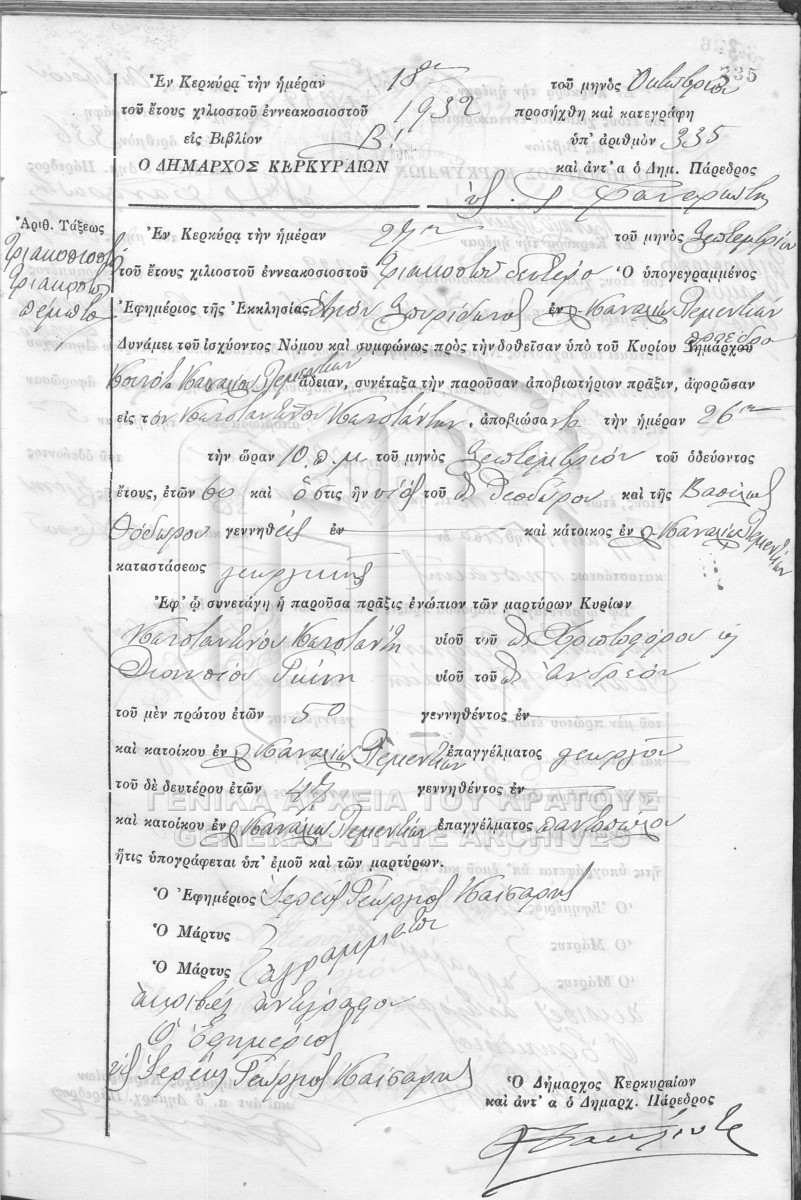 335
Ἐν Κερκύρᾳ τὴν ἡμέραν 18ην τοῦ μηνὸς Ὀκτωβρίου
τοῦ ἔτους χιλιοστοῦ ἐννεακοσιοστοῦ 1932 προσήχθη καὶ κατεγράφη
εἰς Βιβλίον Β! ὑπ' ἀριθμὸν 335
Ὁ ΔΗΜΑΡΧΟΣ ΚΕΡΚΥΡΑΙΩΝ καὶ ἀντ' α ὁ Δημ. Πάρεδρος
Ἀριθ. Τάξεως
Τριακοσιοστὸ
Τριακοστὸ
πέμπτο
Ἐν Κερκύρᾳ τὴν ἡμέραν 27ην τοῦ μηνὸς Σεπτεμβρίου
τοῦ ἔτους χιλιοστοῦ ἐννεακοσιοστοῦ Τριακοστοῦ δευτέρο Ὁ ὑπογεγραμμένος
Ἐφημέριος τῆς Ἐκκλησίας Ἁγίου Σπυρίδωνος ἐν Καναλίων Τεμενίων
Δυνάμει τοῦ ἰσχύοντος Νόμου καὶ συμφώνως πρὸς τὴν δοθεῖσαν ὑπὸ τοῦ Κυρίου Δημάρχου Προέδρο
Κοινότ. Καναλίων Τεμενίων ἄδειαν, συνέταξα τὴν παροῦσαν ἀποβιωτήριον πρᾶξιν, ἀφορῶσαν
εἰς τὸν ἀποβιώσαντα τὴν ἡμέραν 26ην
τὴν ὥραν 10 π.μ τοῦ μηνὸς Σεπτεμβρίου τοῦ ὁδεύοντος
ἔτους, ἐτῶν 60 καὶ ὅστις ἦν υἱὸς τοῦ π Θεοδώρου καὶ τῆς Βασίλως
Θόδωρου γεννηθεὶς ἐν καὶ κάτοικος ἐν Καναλίων Τεμενίων
καταστάσεως γεωργικῆς
Ἐφ' ᾧ συνετάγη ἡ παροῦσα πρᾶξις ἐνώπιον τῶν μαρτύρων Κυρίων
υἱοῦ τοῦ π Χριστοφόρου καὶ
Διονυσίου Γκίνη υἱοῦ τοῦ π Ἀνδρέου
τοῦ μὲν πρώτου ἐτῶν 50 γεννηθέντος ἐν
καὶ κατοίκου ἐν Καναλίων Τεμενίων ἐπαγγέλματος γεωργοῦ
τοῦ δὲ δευτέρου ἐτῶν 47 γεννηθέντος ἐν
καὶ κατοίκου ἐν Καναλίων Τεμενίων ἐπαγγέλματος παντοπώλου
ΓΕΝΙΚΑ ΑΡΧΕΙΑ ΤΟΥ ΚΡΑΤΟΥΣ
GENERAL STATE ARCHIVES
ἥτις ὑπογράφεται ὑπ' ἐμοῦ καὶ τῶν μαρτύρων.
Ὁ Ἐφημέριος Ἱερεὺς Γεώργιος Καίσαρης
Ὁ Μάρτυς
Ὁ Μάρτυς ἀγράμματοι
ἀκριβὲς ἀντίγραφον
Ὁ Ἐφημέριος
Ἱερεὺς Γεώργιος Καίσαρης
Ὁ Δήμαρχος Κερκυραίων
καὶ ἀντ' α ὁ Δημαρχ. Πάρεδρος